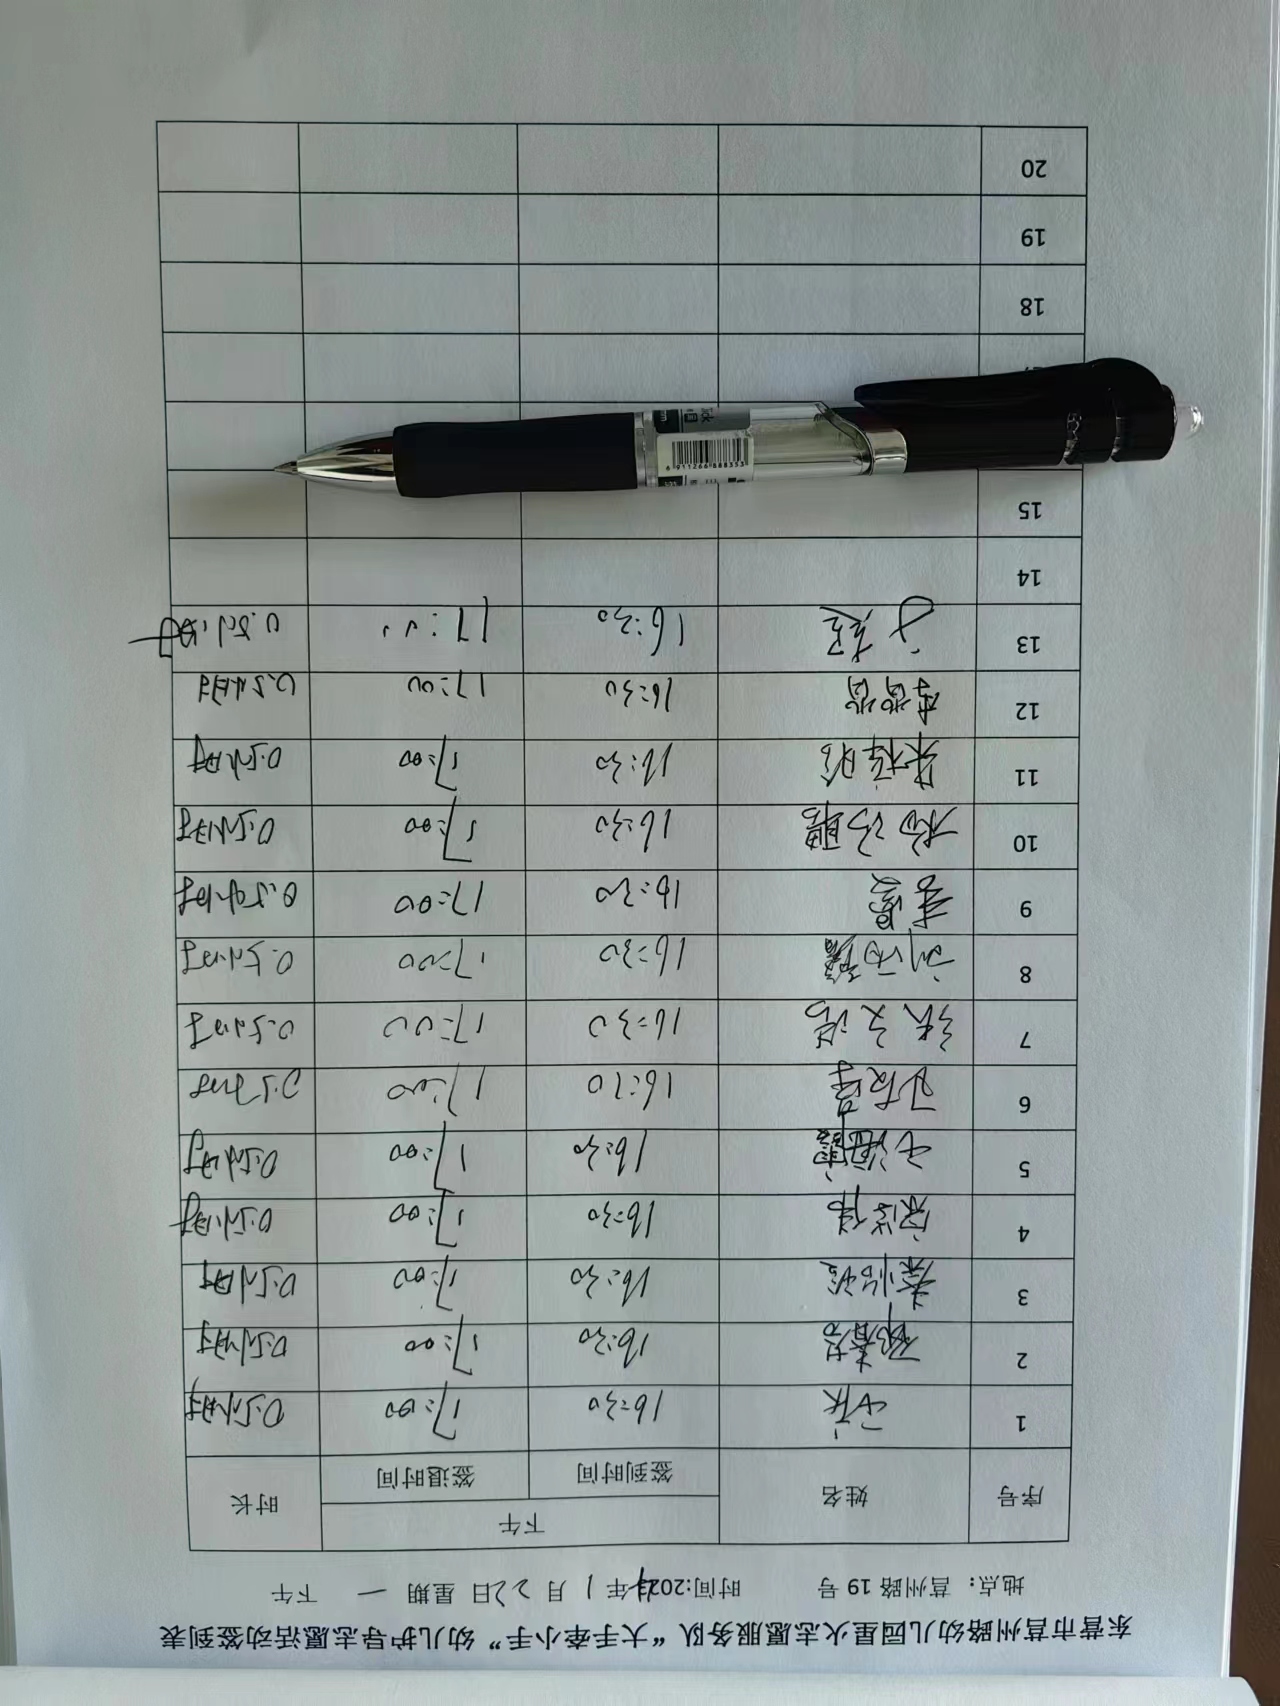 东营市莒州路幼儿园星火志愿服务队“大手牵小手”幼儿护导志愿活动签到表
地点：莒州路 19 号 时间:2024年 1 月 22日 星期 一 下午
序号 姓名 下午 时长
签到时间 签退时间
1 16:30 17:00 0.5小时
2 16:30 17:00 0.5小时
3 16:30 17:00 0.5小时
4 16:30 17:00 0.5小时
5 16:30 17:00 0.5小时
6 17:00
7 张文浩 16:30 17:00 0.5小时
8 16:30 17:00 0.5小时
9 李曼 16:30 17:00 0.5小时
10 16:30 17:00 0.5小时
11 16:30 17:00 0.5小时
12 16:30 17:00 0.5小时
13 16:30
14
15
18
19
20
6 911266 888353